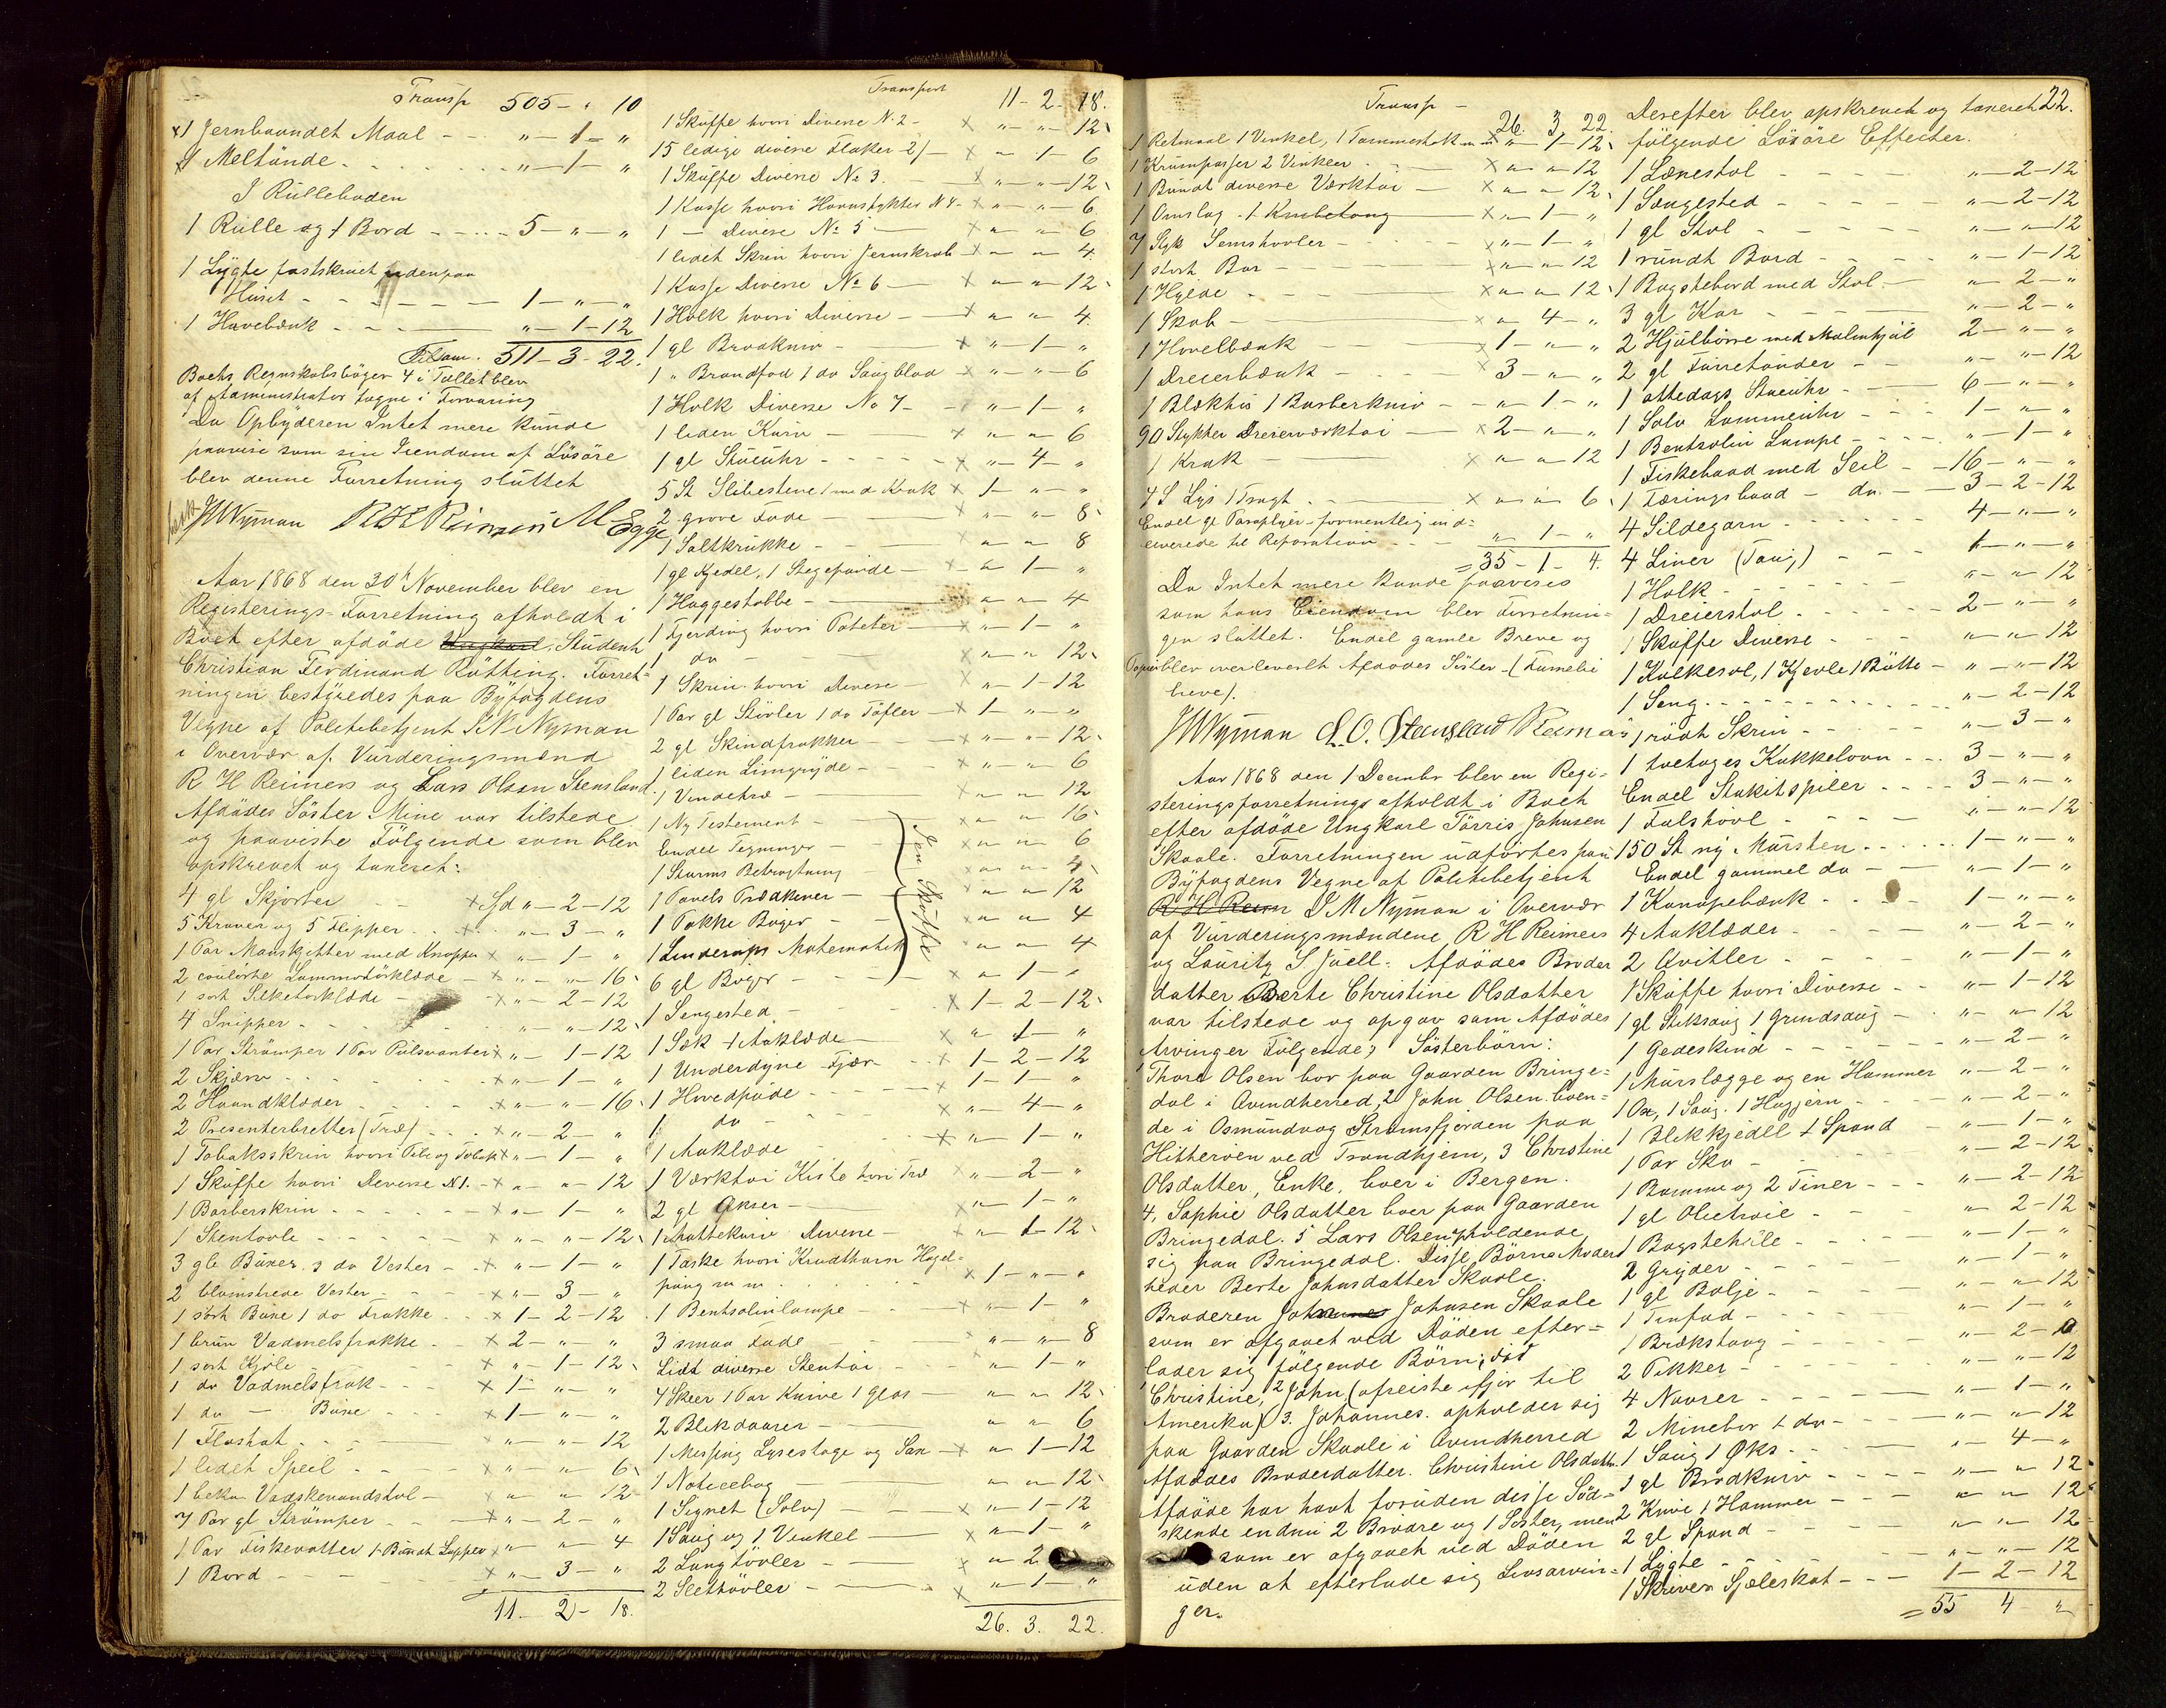 Transp 505 - " 10
x1 Jernbaandet Maal - - " - 1 - "
x1 Meltønde - - - " - 1 - "
I Rulleboden
1 Rulle og 1 Bord - - - - 5 - " - "
1 Lygte fastskruet udenpaa
Huset - - - - - 1 - " - "
1 Havebænk - - - " - 1 - 12
Tilsam. 511 - 3 - 22.
Boets Regnskabsbøger 4 i Tallet blev
af Administrator tagne i Forvaring
Da Opbyderen Intet mere kunde
paavise som sin Eiendom af Løsøre
blev denne Forretning sluttet
JMNyman R H Reimers M Egge
Aar 1868 den 30te November blev en
Registerings-Forretning afholdt i
Boet efter afdøde Ungkarl, Student
Christian Ferdinand Rütting. Forret-
ningen bestyredes paa Byfogdens
Vegne af Politibetjent J M Nyman
i Overvær af Vurderingsmænd
R H Reimers og Lars Olsen Stensland.
Afdødes Søster Mine var tilstede
og paaviste Følgende som blev
opskrevet og taxeret:
4 gl Skjorter - - x Spd " - 2 - 12
5 Kraver og 5 Flipper - - x " - 3 - "
1 Par Manskjetter med Knapper x " - 1 - "
2 coulørte Lommetørklæde - x " - " - 16
1 sort Silketørklæde - x " - 2 - 12
4 Snipper - - - " - " - 12
1 Par Strømper 1 Par Pulsvanter x " - 1 - 12
2 Skjærv - - - x " - 1 - "
2 Haandklæder - - x " - " - 16
2 Presenterbretter (Træ) - - x " - 2 - "
1 Tobaksskrin hvori Pibe og Tobak x " - 1 - "
1 Skuffe hvori Diverse N1. - x " - " - 12
1 Barberskrin - - - x " - 1 - "
1 Stentavle - - - x " - " - 12
3 gle Buxer 3 do Vester - - x " - 1 - "
2 blomstrede Vester - - x " - 3 - "
1 sort Buxe 1 do Frakke - - x 1 - 2 - 12
1 brun Vadmelsfrakke - - x 2 - " - "
1 sort Kjole - - x " - 1 - 12
1 do Vadmelsfrak - - x 1 - " - "
1 do - Buxe - - x 1 - " - "
1 Floshat - - x " - " - 12
1 lidet Speil - - x " - " - 6
1 bekv Vadskevandstol - x " - " - 12
7 Par gl Strømper - - x " - 2 - "
1 Par Fiskevatter 1 Bundt Lapper x " - " - 4
1 Bord - - - x " - 3 - "
11. 2 - 18.
Transport 11 - 2 - 18.
1 Skuffe hvori Diverse N. 2 - x " - " - 12
15 ledige diverse Flasker 2/- x " - 1 - 6
1 Skuffe Diverse No 3. - x " - " - 12
1 Kasse hvori Hornstykker N 4 - x " - " - 6
1 - Diverse No 5 - x " - " - 6
1 lidet Skrin hvori Jernskrab - x " - " - 4
1 Kasse Diverse No 6 - x " - " - 12
1 Holk hvori Diverse - x " - " - 4
1 gl Brødkniv - x " - 1 - "
1 " Brandfod 1 do Saugblad - x " - " - 6
1 Holk Diverse No 7 - - " - 1 - "
1 liden Kurv - x " - " - 6
1 gl Stueuhr - - - x " - 4 - "
5 St Slibestene 1 med Krak x 1 - " - "
2 grove Fade - x " - " - 8
1 Saltkrukke - x " - " - 8
1 gl Kjedel, 1 Stegepande - x " - 1 - "
1 Huggestabbe - " - " - 4
1 Fjerding hvori Poteter - x " - 1 - "
1 do - x " - " - 12
1 Skrin hvori Diverse - x " - 1 - 12
1 Par gl Støvler 1 do Tøfler - x 1 - " - "
2 gl Skindfrakker - x " - " - 12
1 liden Limgryde - x " - " - 6
1 Vendetræ - x " - " - 12
1 Ny Testement - x " - " - 16
Endel Tegninger - x " - " - 6
1 Sturms Betragtning x " - " - 4
1 Pavels Prædikener - x " - " - 12
1 Pakke Bøger - - x " - " - 4
1 Linderups Matematik x " - " - 4
6 gl Bøger - x " - 1 - "
1 Sengested - x 1 - 2 - 12
1 Sæk 1 Aaklæde - x " - 1 - "
1 Underdyne Fjær - x 1 - 2 - 12
1 Hovedpude - - x 1 - 1 - "
1 do - x " - 4 - "
1 Aaklæde - x " - 1 - "
1 Værktøi Kiste hvori Træ x " - 2 - "
2 gl Økser - x " - 1 - "
1 Mattekurv Diverse - x " - 1 - 12
1 Taske hvori Krudthorn Hagel-
pung m m - x 1 - " - "
1 Bentsolinlampe - x " - 1 - "
3 smaa Fade - x " - " - 8
Lidt diverse Stentøi - x " - 1 - "
4 Skeer 1 Par Knive 1 Glas - " - " - 12
2 Blikdaaser - " - " - 6
1 Messing Lysestage og Sax - x " - 1 - 12
1 Noticebog - " - " - 12
1 Signet (Sølv) - x " - 1 - 12
1 Saug og 1 Vinkel - x " - 1 - "
2 Langhøvler - x " - 2
2 Slethøvler - x " - 1 - "
26. 3. 22.
Transp - 26. 3 22.
1 Retmaal 1 Vinkel, 1 Tommestok m m x " - 1 - 12
1 Krumpasser 2 Vinkler - x " - " - 12
1 Bundt diverse Værktøi - x " - " - 12
1 Omslag - 1 Knibetang - x " - 1 - "
7 Styk Semshøvler - x " - 1 - "
1 stort Bor - x " - " - 12
1 Hylde - x " - " - 12
1 Skab - x " - 4 - "
1 Høvelbænk - x 1 - " - "
1 Dreierbænk - x 3 - " - "
1 Blækhus 1 Barberkniv - - " - 1 - "
90 Stykker Dreierværktøi - x 2 - " - "
1 Krak - x " - " - 12
4 S Lys 1 Tragt - x " - " - 6
Endel gl Paraplyer formentlig ind-
leverede til Reparation - - " - 1 - "
= 35 - 1 - 4.
Da Intet mere kunde paavises
som hans Eiendom blev Forretnin-
gen sluttet. Endel gamle Breve og
Papirer blev overleveret Afdødes Søster - (Familie
breve).
JMNyman L. O. Stensland Reimers
Aar 1868 den 1 December blev en Regi-
steringsforretnings afholdt i Boet
efter afdøde Ungkarl Tørris Johnsen
Skaale. Forretningen udførtes paa
Byfogdens Vegne af Politibetjent
R H Reim J M Nyman i Overvær
af Vurderingsmændene R H Reimers
og Lauritz S Juell. Afdødes Broder
datter Berte Christine Olsdatter
var tilstede og opgav som Afdødes
Arvinger Følgende; Søsterbørn:
1 Thore Olsen bor paa Gaarden Bringe-
dal i Qvindherred, 2 John Olsen boen-
de i Osmundvog Strømsfjorden paa
Hitterøen ved Trondhjem, 3 Christine
Olsdatter, Enke, boer i Bergen.
4, Sophie Olsdatter boer paa Gaarden
Bringedal. 5 Lars Olsen opholdende
sig paa Bringedal. Disse Børns Moder
heder Berte Johnsdatter Skaale.
Broderen Johannes Johnsen Skaale
som er afgaaet ved Døden efter-
lader sig følgende Børn:
1 Christine, 2 John (afreiste ifjor til
Amerika) 3. Johannes. opholder sig
paa Gaarden Skaale i Qvindherred
Afdødes Broderdatter. Christine Olsdatter.
Afdøde har havt foruden disse Sød-
skende endnu 2 Brødre og 1 Søster, men
som er afgaaet ved Døden
uden at efterlade sig Livsarvin-
ger.
22.
Derefter blev opskrevet og taxeret
følgende Løsøre Effecter.
1 Lænestol - - - " - 2 - 12
1 Sengested - - - " - 2 - 12
1 gl Stol - - - " - " - 12
1 rundt Bord - - - " - 1 - 12
1 Bagstebord med Stol - " - 2 - "
3 gl Kar - - - " - 2 - "
2 Hjulbøre med Malmhjul 2 - " - "
2 gl Tørretønder - - " - " - 12
1 ottedags Stueuhr - - 6 - " - "
1 Sølv Lommeuhr - - 1 - " - "
1 Bentsolin Lampe - - " - 1 - "
1 Fiskebaad med Seil - - 16 - " - "
1 Færingsbaad - do. - - 3 - 2 - 12
4 Sildegarn - - - 4 - " - "
4 Liner (Taug) - - 1 - " - "
1 Holk - - - " - " - 12
1 Dreierstol - - - 2 - " - "
1 Skuffe Diverse - - " - " - 12
1 Kulkesvl, 1 Kjevle 1 Bøtte - " - " - 12
1 Seng - - - " - 2 - 12
1 rødt Skrin - - - " - 3 - "
1 toetages Kakkelovn - - 3 - " - "
Endel Stakitspiler - - 3 - " - "
1 Falshøvl - - - " - " - 12
150 St ny Mursten - - 1 - " - "
Endel gammel do - " - 1 - "
1 Kanapebænk - - 1 - " - "
4 Aaklæder - - - " - 2 - "
2 Qvitler - - - " - 1 - "
1 Skuffe hvori Diverse - - " - 1 - 12
1 gl Stiksaug 1 Grindsaug - " - " - 12
1 Gedeskind - - - " - 2 - "
1 Murslægge og en Hammer " - 2 - "
1 Øx, 1 Saug. 1 Hugjern - - " - 2 - "
1 Blikkjedel 1 Spand - " - 1 - "
1 Par Sko - - " - 2 - 12
1 Bomme og 2 Tiner - - " - 2 - 12
1 gl Olietrøie - - " - 2 - 12
1 Bagstehelle - - " - 1 - "
2 Gryder - - " - 1 - "
1 gl Bolje - - " - " - 12
1 Tinfad - - " - 1 - "
1 Brækstang - - " - 2 - "
2 Pikker - - " - " - 12
4 Navrer - - " - 1 - "
2 Minebor 1 do - - " - " - 12
1 Saug 1 Øks - - " - 4 - "
1 gl Brødkniv - - " - " - 12
2 Knive 1 Hammer - - " - " - 12
2 gl Spand - - " - " - 12
1 Lygte - - " - " - 12
1 Skrivers Sjæleskat - - 1 - 2 - 12
= 55 4 - "